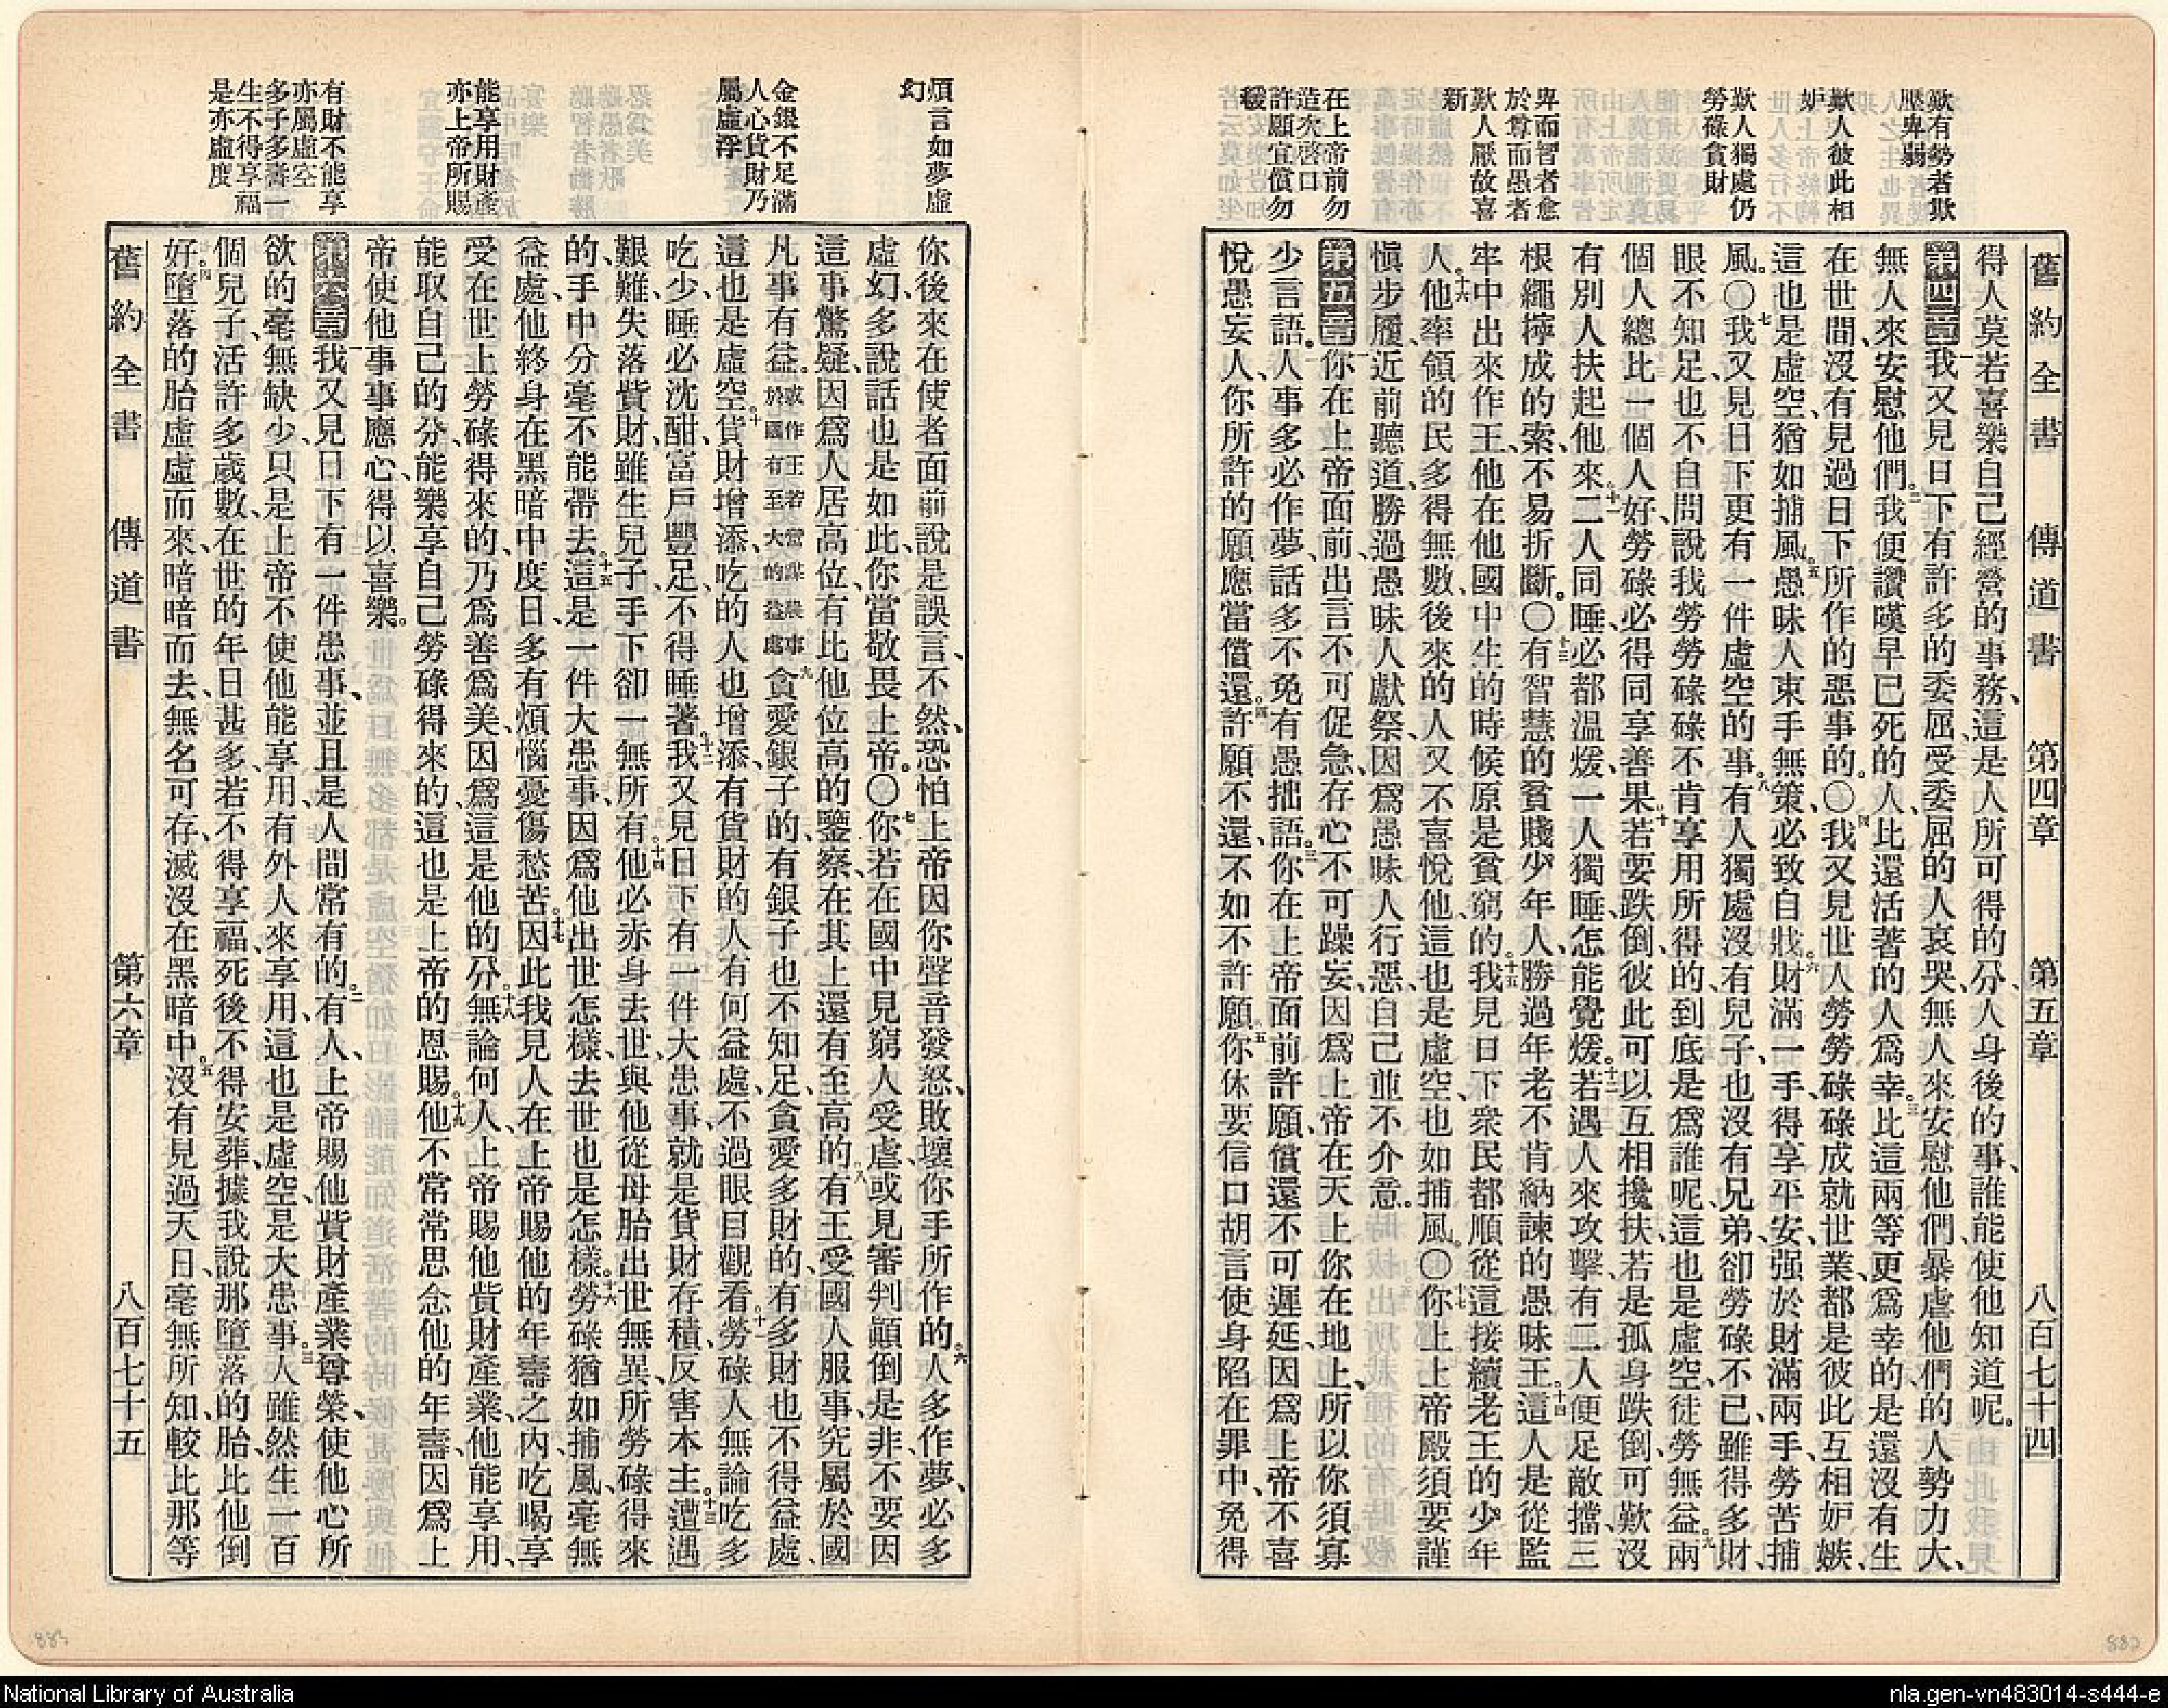 舊約全書 傳道書 第四章 第五章 八百七十四
歎有勢者欺
壓卑弱
歎人彼此相
妒
歎人獨處仍
勞碌貪財
卑而智者愈
於尊而愚者
歎人厭故喜
新
在上帝前勿
造次啓口
許願宜償勿
緩
得人莫若喜樂自己經營的事務、這是人所可得的分、人身後的事、誰能使他知道呢。
第四章一我又見日下有許多的委屈、受委屈的人哀哭、無人來安慰他們、暴虐他們的人勢力大、
無人來安慰他們。二我便讚嘆早已死的人、比還活著的人爲幸。三比這兩等更爲幸的、是還沒有生
在世間、沒有見過日下所作的惡事的。〇四我又見世人勞勞碌碌成就世業、都是彼此互相妒嫉、
這也是虛空、猶如捕風。五愚昧人束手無策、必致自戕。六財滿一手、得享平安、强於財滿兩手、勞苦捕
風。〇七我又見日下更有一件虛空的事。八有人獨處沒有兒子、也沒有兄弟、卻勞碌不已、雖得多財、
眼不知足、也不自問說、我勞勞碌碌不肯享用所得的、到底是爲誰呢、這也是虛空、徒勞無益。九兩
個人總比一個人好、勞碌必得同享善果。十若要跌倒、彼此可以互相攙扶、若是孤身跌倒、可歎沒
有別人扶起他來。十一二人同睡、必都溫煖、一人獨睡、怎能覺煖。十二若遇人來攻擊、有二人便足敵擋、三
根繩擰成的索、不易折斷。〇十三有智慧的貧賤少年人、勝過年老不肯納諫的愚昧王。十四這人是從監
牢中出來作王、他在他國中生的時候、原是貧窮的。十五我見日下衆民都順從這接續老王的少年
人。十六他率領的民多得無數、後來的人又不喜悅他、這也是虛空、也如捕風。〇十七你上上帝殿須要謹
愼步履、近前聽道、勝過愚昧人獻祭、因爲愚昧人行惡、自己並不介意。
第五章一你在上帝面前、出言不可促急、存心不可躁妄、因爲上帝在天上、你在地上、所以你須寡
少言語。二人事多必作夢、話多不免有愚拙語。三你在上帝面前許願、償還不可遲延、因爲上帝不喜
悅愚妄人、你所許的願、應當償還。四許願不還、不如不許願。五你休要信口胡言、使身陷在罪中、免得
煩言如夢虛
幻
金銀不足滿
人心貨財乃
屬虛浮
能享用財產
亦上帝所賜
有財不能享
亦屬虛空
多子多壽一
生不得享福
是亦虛度
你後來在使者面前說是誤言、不然、恐怕上帝因你聲音發怒、敗壞你手所作的。六人多作夢、必多
虛幻、多說話也是如此、你當敬畏上帝。〇七你若在國中見窮人受虐、或見審判顚倒是非、不要因
這事驚疑、因爲人居高位、有比他位高的鑒察、在其上還有至高的。八有王受國人服事、究屬於國
凡事有益。或作王若嘗謀農事於國有至大的益處九貪愛銀子的、有銀子也不知足、貪愛多財的、有多財也不得益處、
這也是虛空。十貨財增添、吃的人也增添、有貨財的人有何益處、不過眼目觀看。十一勞碌人無論吃多
吃少、睡必沈酣、富戶豐足、不得睡著。十二我又見日下有一件大患事、就是貨財存積、反害本主。十三遭遇
艱難、失落貲財、雖生兒子、手下卻一無所有。十四他必赤身去世、與他從母胎出世無異、所勞碌得來
的、手中分毫不能帶去。十五這是一件大患事、因爲他出世怎樣、去世也是怎樣。十六勞碌猶如捕風、毫無
益處、他終身在黑暗中度日、多有煩惱憂傷愁苦。十七因此我見人在上帝賜他的年壽之內、吃喝享
受在世上勞碌得來的、乃爲善爲美、因爲這是他的分。十八無論何人、上帝賜他貲財產業、他能享用、
能取自己的分、能樂享自己勞碌得來的、這也是上帝的恩賜。十九他不常常思念他的年壽、因爲上
帝使他事事應心、得以喜樂。
第六章一我又見日下有一件患事、並且是人間常有的。二有人、上帝賜他貲財產業尊榮、使他心所
欲的毫無缺少、只是上帝不使他能享用、有外人來享用、這也是虛空、是大患事。三人雖然生一百
個兒子、活許多歲數、在世的年日甚多、若不得享福、死後不得安葬、據我說那墮落的胎、比他倒
好。四墮落的胎虛虛而來、暗暗而去、無名可存、滅沒在黑暗中。五沒有見過天日、毫無所知、較比那等
舊約全書 傳道書 第六章 八百七十五
883
882
National Library of Australia
nla.gen-vn483014-s444-e